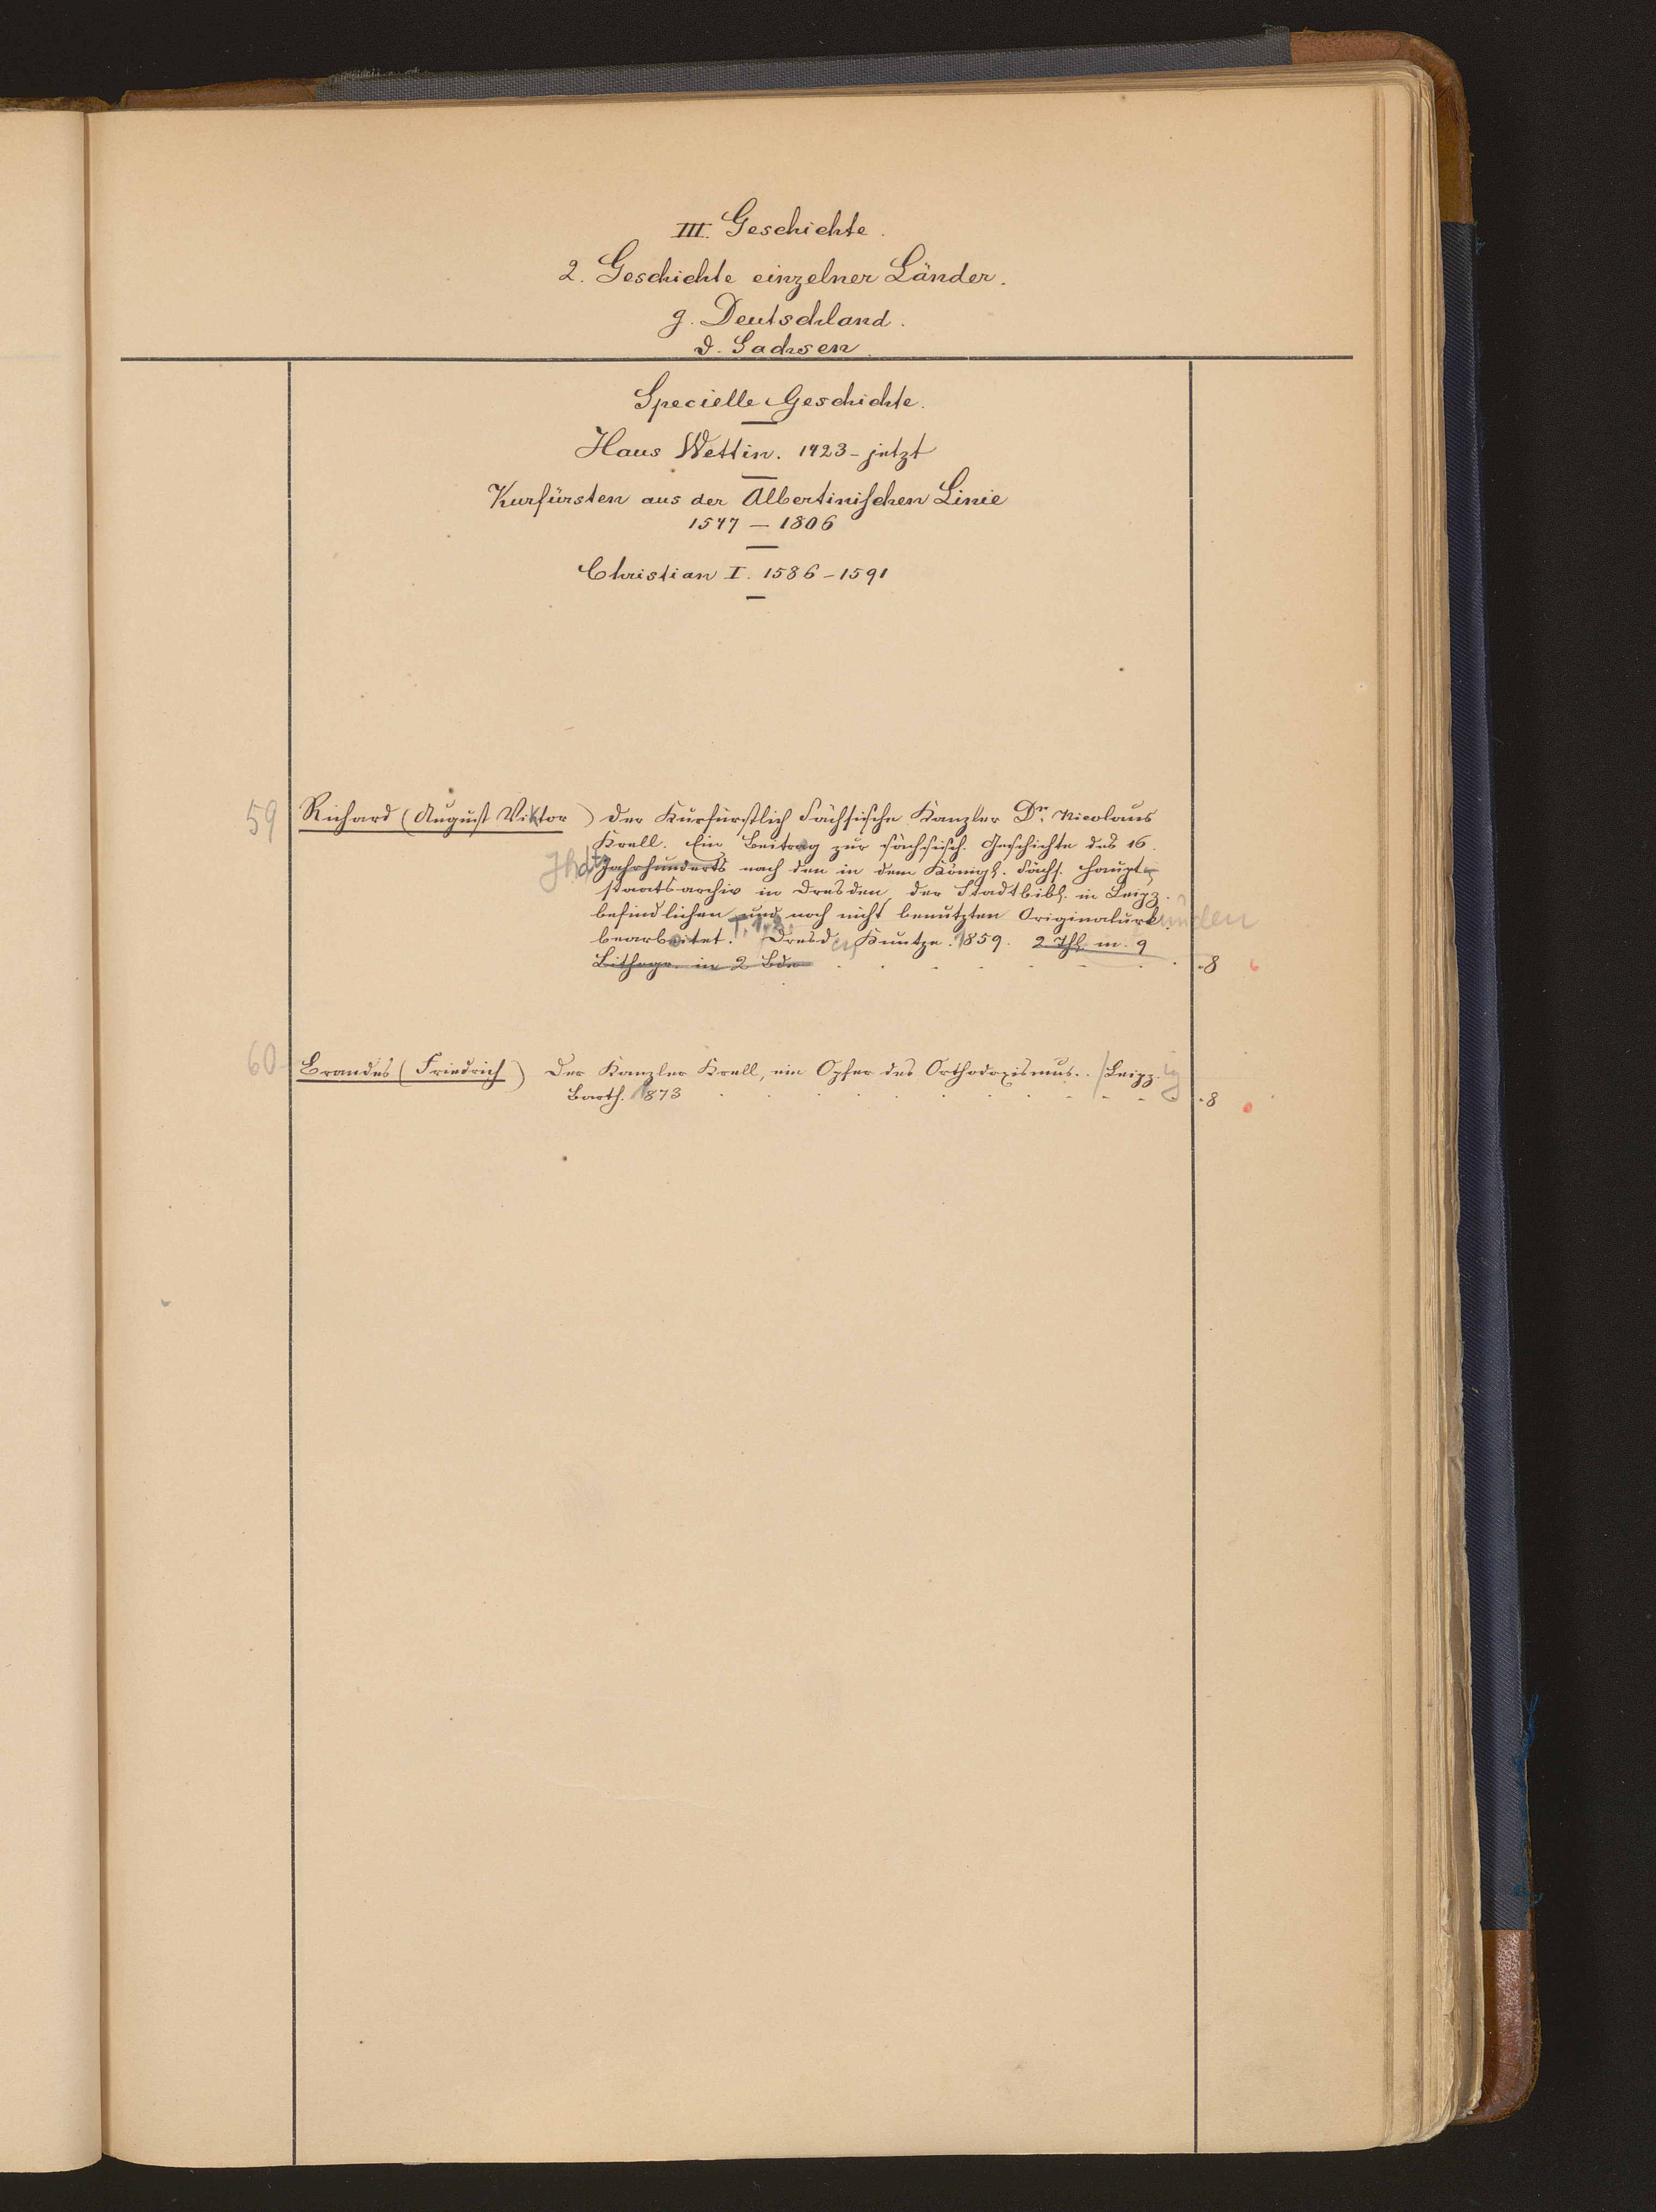 III. Geschichte.
2. Geschichte einzelner Länder.
g. Deutschland.
d. Sachsen.
Specielle Geschichte.
Haus Wettin. 1423 - jetzt
Kurfürsten aus der Albertinischen Linie
1547 — 1806
Christian I. 1586 - 1591
59 Richard (August Viktor) Der Kurfürstlich Sächsische Kanzler Dr. Nicolaus
Krell. Ein Beitrag zur sächsisch. Geschichte des 16.
Jhdts Jahrhunderts nach den in dem Königl. Sächs. Haupt-
staatsarchiv in Dresden, der Stadtbibl. in Leipz.
befindlichen und noch nicht benutzten Originalurk. unden
bearbeitet. T. 1.2. Dresden, Kuntze. 1859. 2 Thl. in 9
in 2 Bde . . . . . . . . 8
60 Brandes (Friedrich) Der Kanzler Krell, ein Opfer des Orthodoxismus. / Leipz.ig
Barth. 1873 . . . . . . . . . . 8